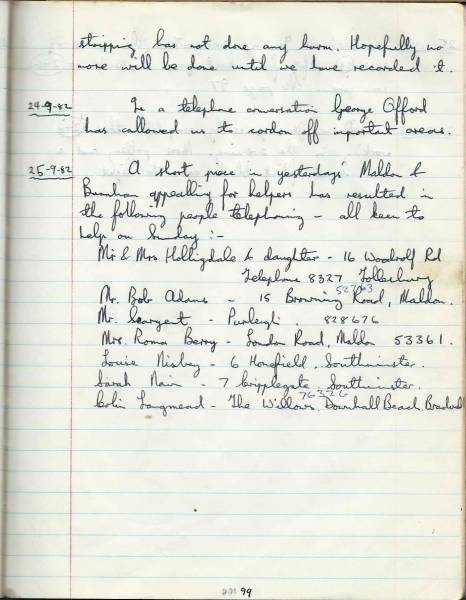 stripping has not done any harm. Hopefully no
more will be done until we have recorded it.
24-9-82 In a telephone conversation George Offord
has allowed us to cordon off important areas.
25-9-82 A short piece in yesterdays' Maldon &
Burnham appealling for helpers has resulted in
the following people telephoning - all keen to
help on Sunday :-
Mr & Mrs Hollingdale & daughter - 16 Woodrolf Rd
Telephone 8327 Tollesbury
Mr. Bob Adams - 15 Browning Road, Maldon.
Mr. Sargent - Purleigh. 828676
Mrs. Roma Berry - London Road, Maldon 53361.
Louise Nisbey - 6 Honeyfield, Southminster.
Sarah Nain - 7 Cripplegate, Southminster.
76326
Colin Langmead - The Willows, Downhall Beach, Bradwell
99